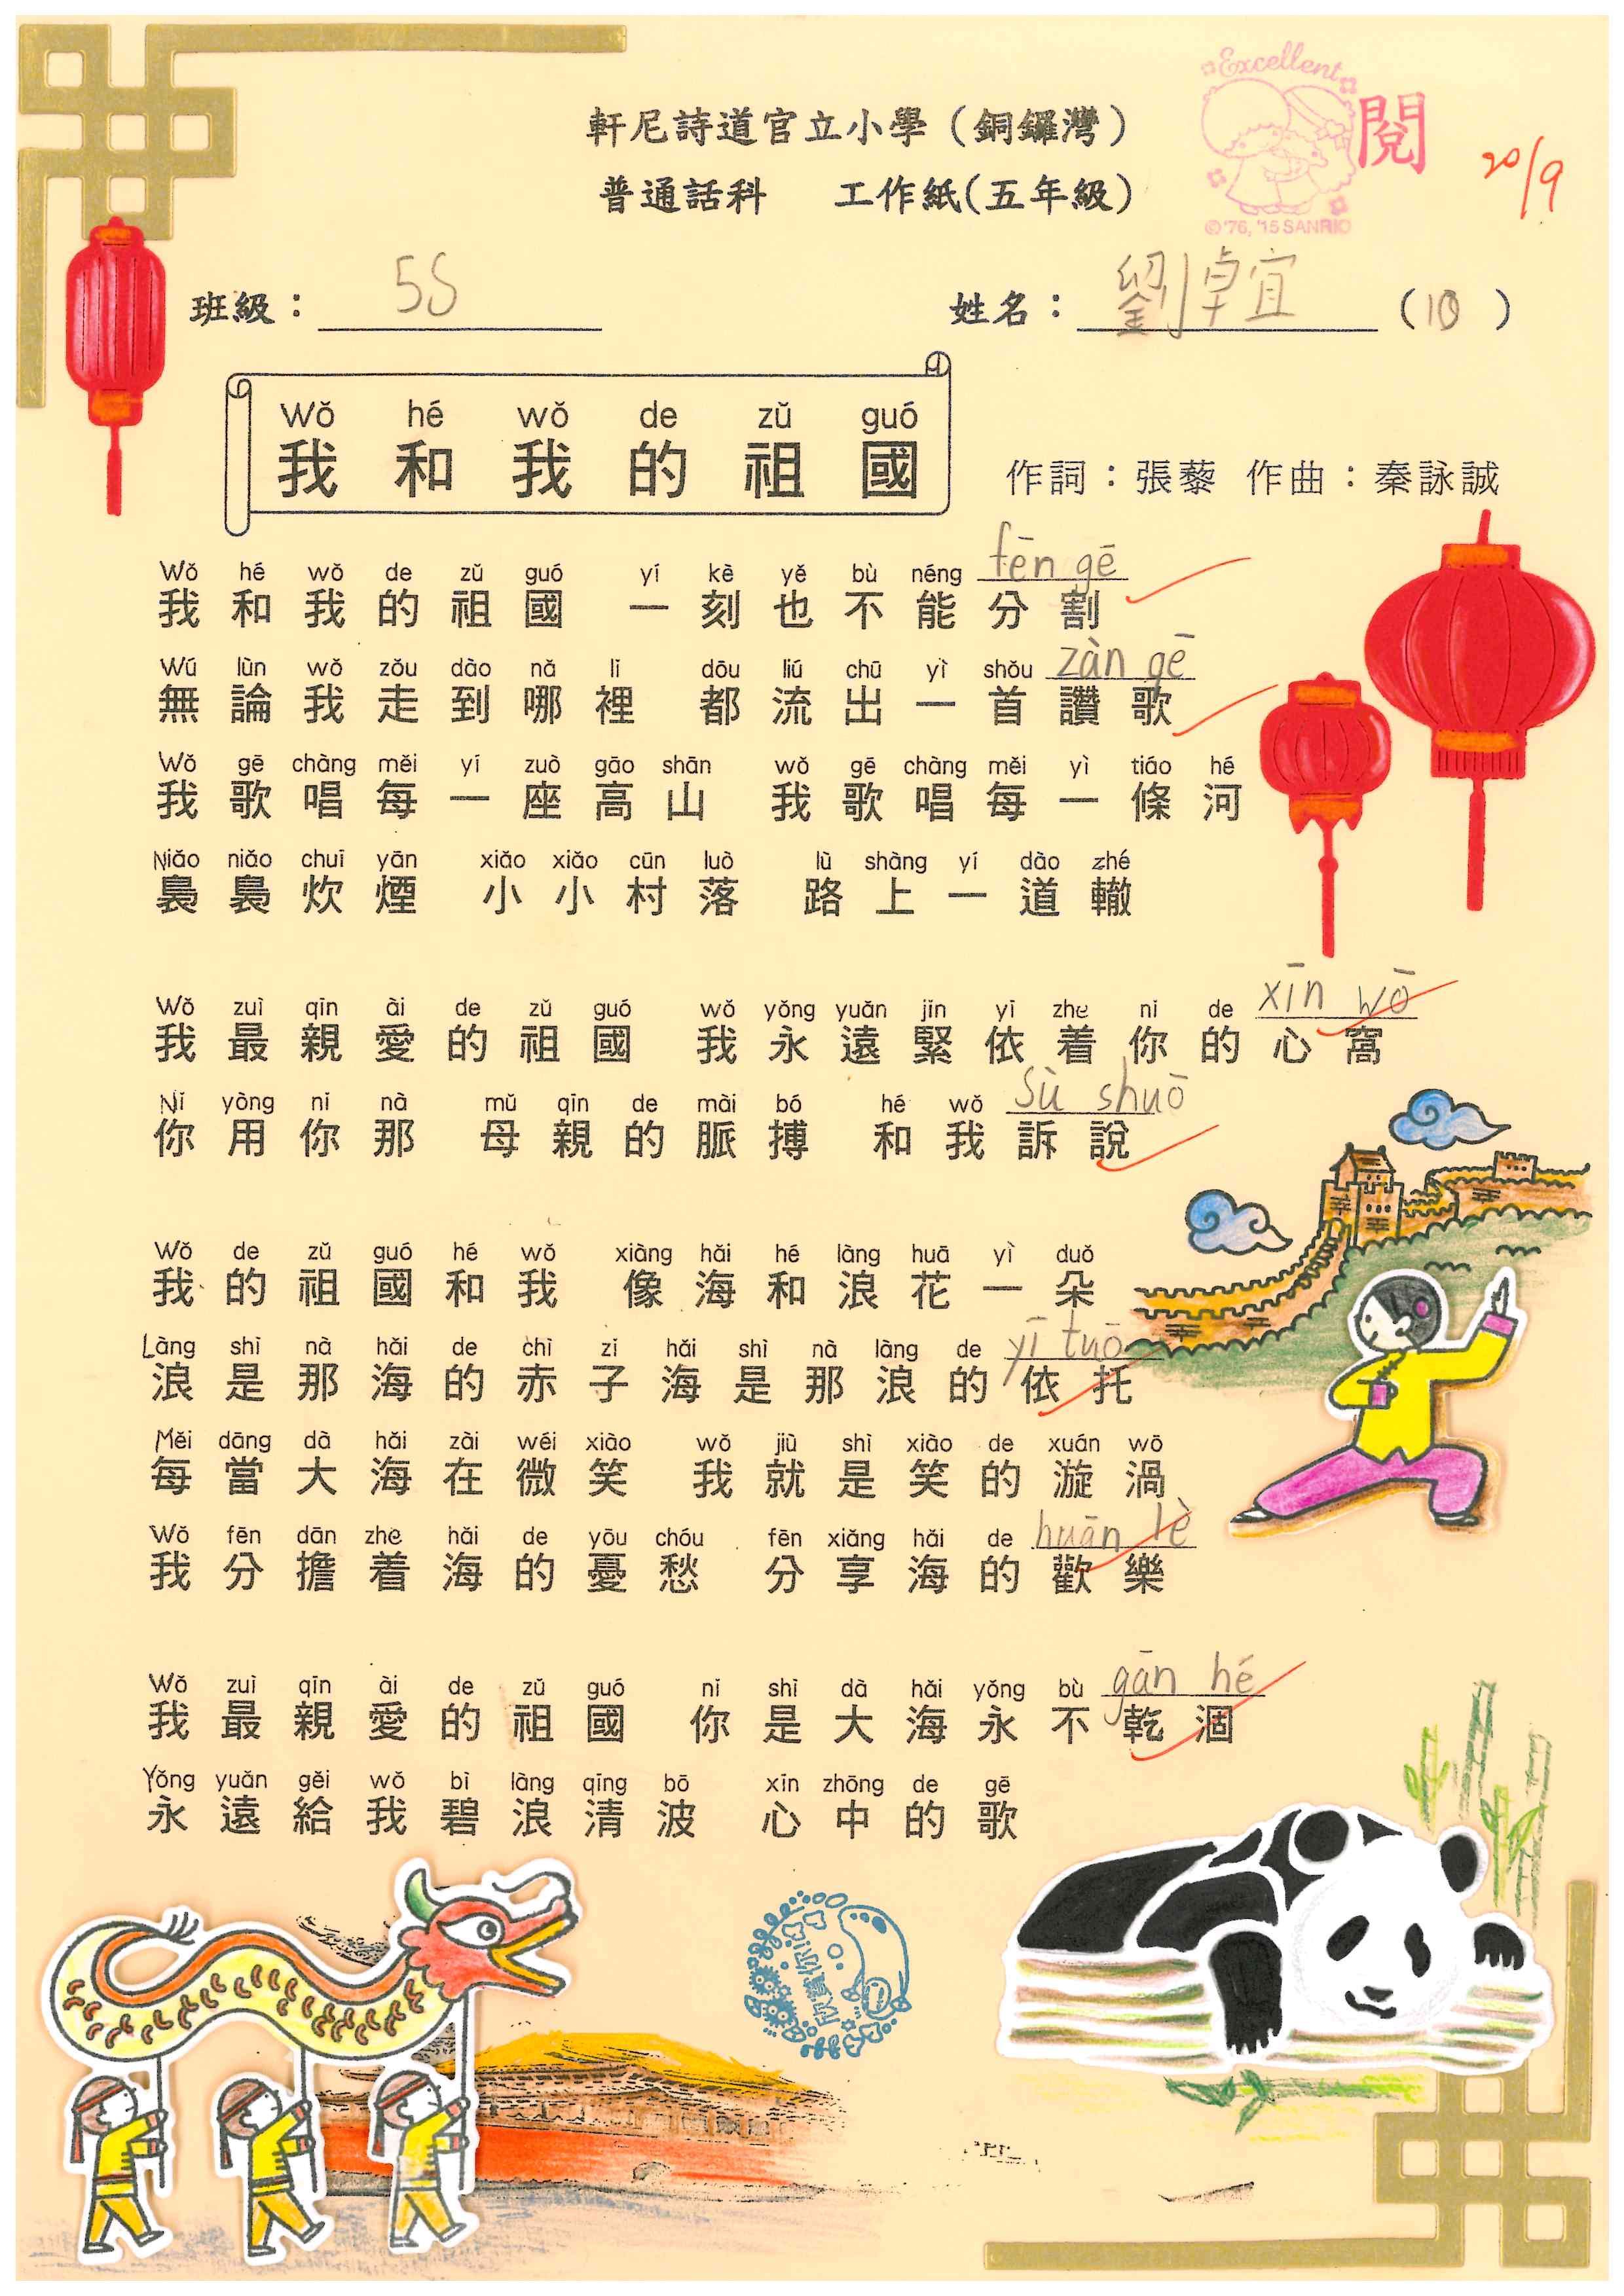 Excellent
閱
20/9
©'76, '15 SANRIO
軒尼詩道官立小學（銅鑼灣）
普通話科 工作紙(五年級)
班級： 5S 姓名： 劉卓宜 (10)
Wǒ hé wǒ de zǔ guó
我和我的祖國
作詞：張藜 作曲：秦詠誠
Wǒ hé wǒ de zǔ guó yí kè yě bù néng fēn gē
我和我的祖國 一刻也不能分割
Wú lùn wǒ zǒu dào nǎ lǐ dōu liú chū yì shǒu zàn gē
無論我走到哪裡 都流出一首讚歌
Wǒ gē chàng měi yí zuò gāo shān wǒ gē chàng měi yì tiáo hé
我歌唱每一座高山 我歌唱每一條河
Niǎo niǎo chuī yān xiǎo xiǎo cūn luò lù shàng yí dào zhé
裊裊炊煙 小小村落 路上一道轍
Wǒ zuì qīn ài de zǔ guó wǒ yǒng yuǎn jǐn yī zhe nǐ de xīn wō
我最親愛的祖國 我永遠緊依着你的心窩
Nǐ yòng nǐ nà mǔ qīn de mài bó hé wǒ sù shuō
你用你那 母親的脈搏 和我訴說
Wǒ de zǔ guó hé wǒ xiàng hǎi hé làng huā yì duǒ
我的祖國和我 像海和浪花一朵
Làng shì nà hǎi de chì zǐ hǎi shì nà làng de yī tuō
浪是那海的赤子海是那浪的依托
Měi dāng dà hǎi zài wēi xiào wǒ jiù shì xiào de xuán wō
每當大海在微笑 我就是笑的漩渦
Wǒ fēn dān zhe hǎi de yōu chóu fēn xiǎng hǎi de huān lè
我分擔着海的憂愁 分享海的歡樂
Wǒ zuì qīn ài de zǔ guó nǐ shì dà hǎi yǒng bù gān hé
我最親愛的祖國 你是大海永不乾涸
Yǒng yuǎn gěi wǒ bì làng qīng bō xīn zhōng de gē
永遠給我碧浪清波 心中的歌
欣賞你